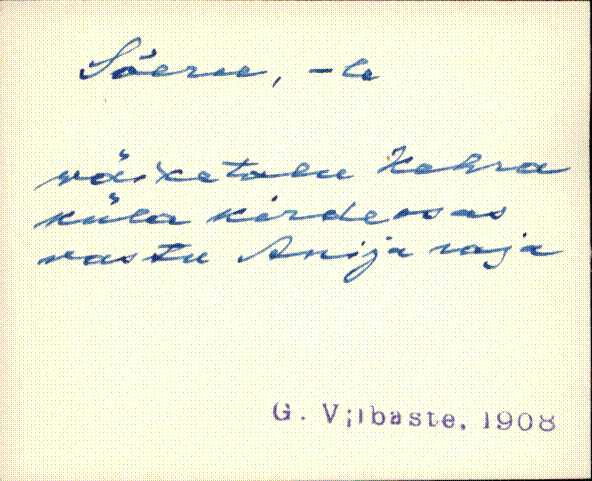 Sõeru, -le
väiketalu Kehra
küla kirdeosas
vastu Anija raja
G. Vilbaste, 1908